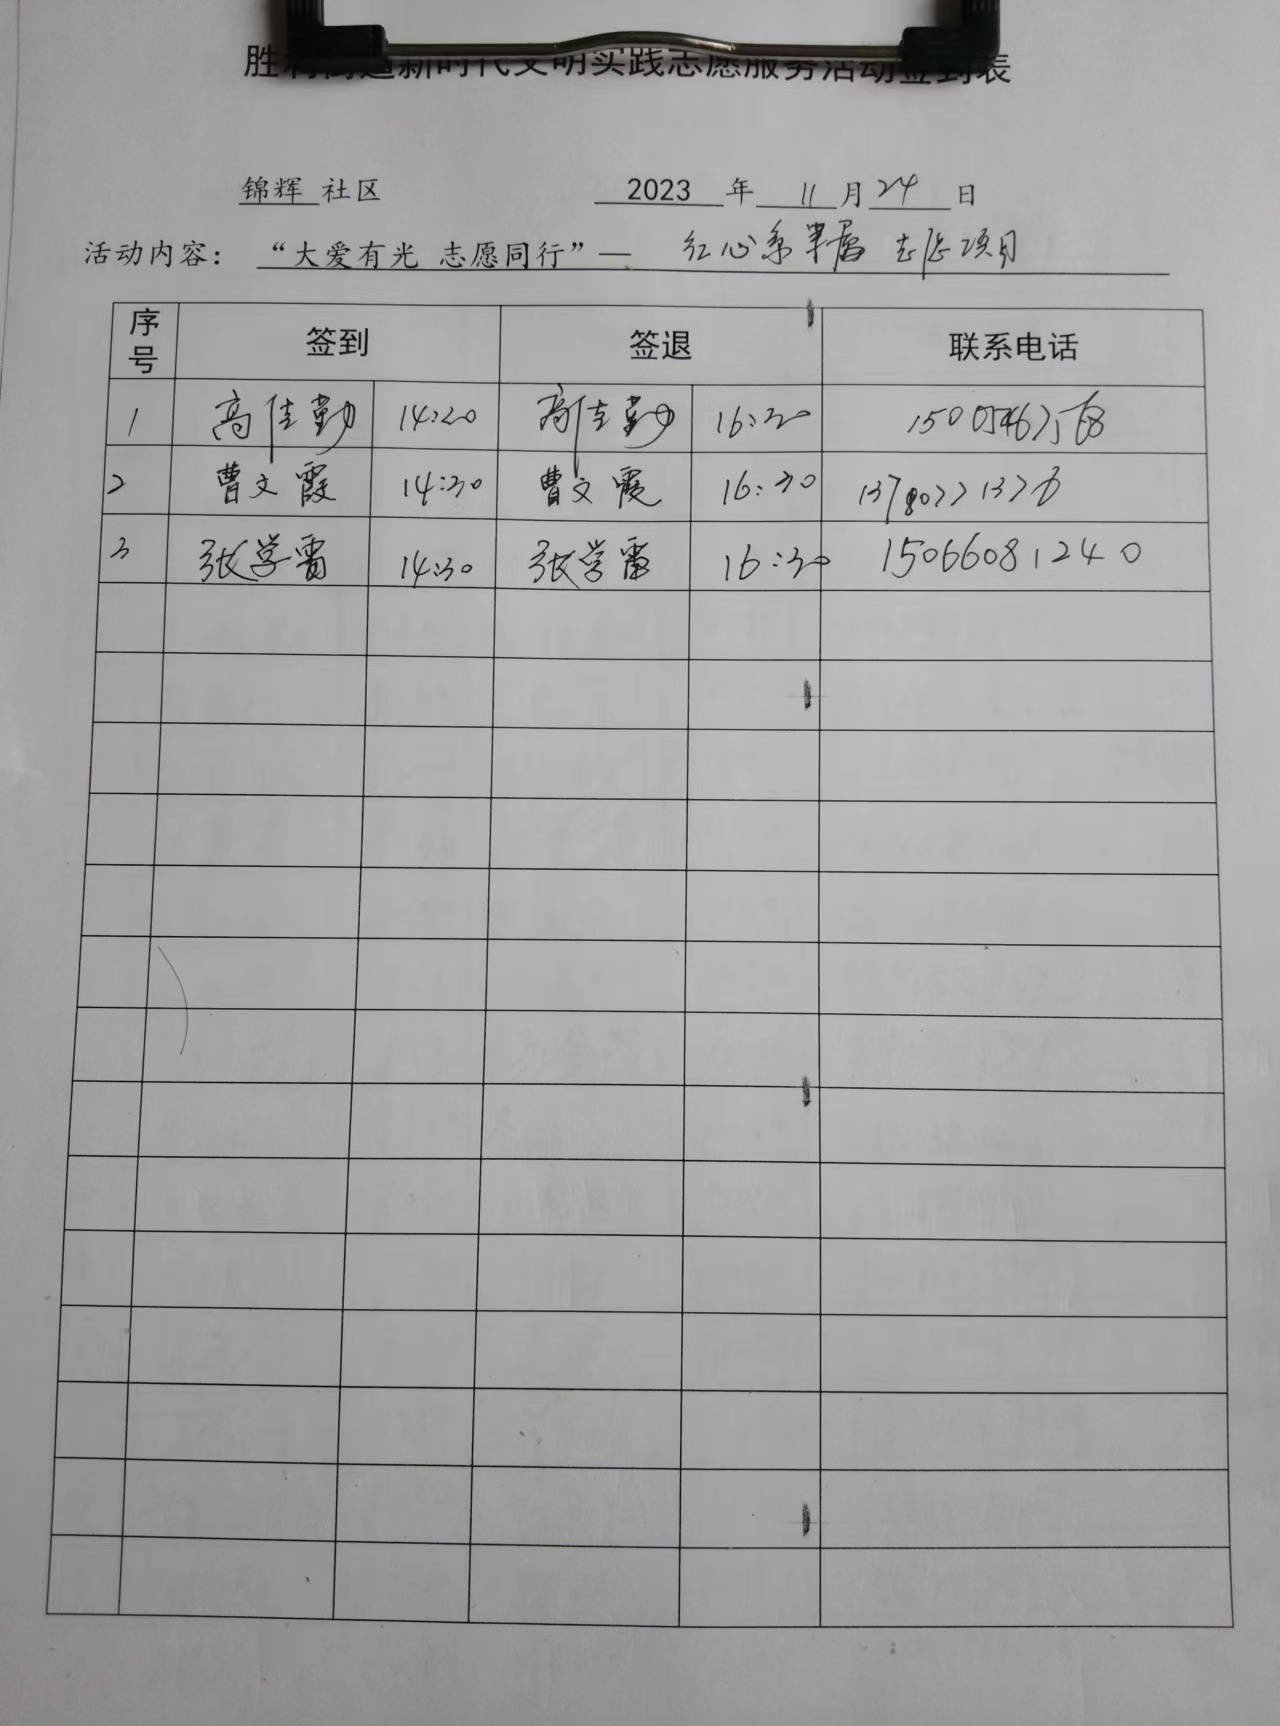 胜利街道新时代文明实践志愿服务活动签到表
锦辉 社区 2023 年 11 月 24 日
活动内容：“大爱有光 志愿同行”— 红心系军属 志愿项目
序号 签到 签退 联系电话
1 高佳勤 14:20 高佳勤 16:20
2 曹文霞 14:30 曹文霞 16:30 13780221326
3 张学雷 14:30 张学雷 16:30 15066081240